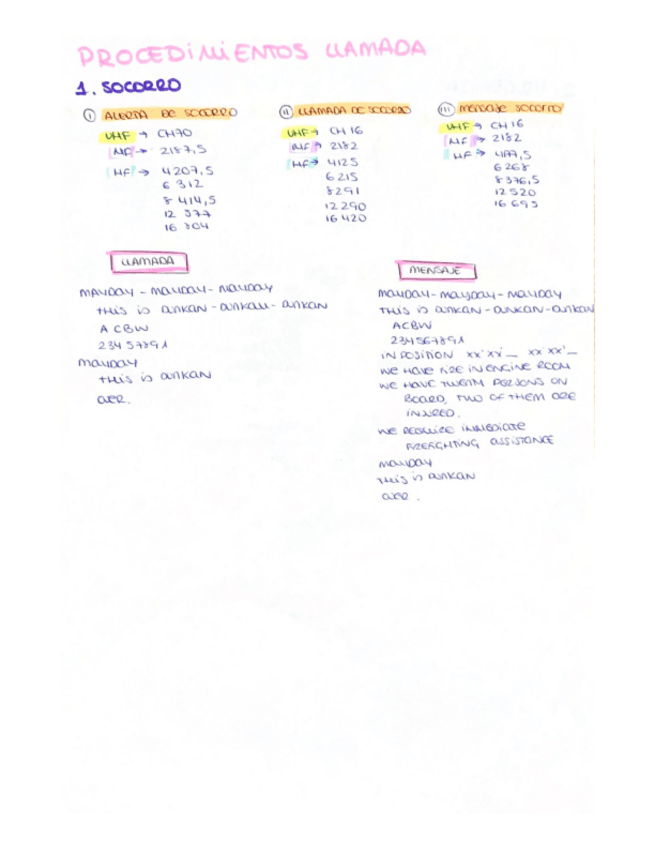 PROCEDIMIENTOS LLAMADA
1. SOCORRO
I ALERTA DE SOCORRO
VHF → CH70
MF → 2187,5
HF → 4207,5
6 312
8 414,5
12 577
16 804
II LLAMADA DE SOCORRO
VHF → CH 16
MF → 2182
HF → 4125
6 215
8291
12 290
16 420
III MENSAJE SOCORRO
VHF → CH 16
MF → 2182
HF → 4177,5
6 268
8 376,5
12 520
16 695
LLAMADA
MAYDAY - MAYDAY - MAYDAY
THIS IS
ACBW
234 57891
MAYDAY
THIS IS
OVER.
MENSAJE
MAYDAY - MAYDAY - MAYDAY
THIS IS
ACBW
234567891
IN POSITION xx° xx' _ xx xx' _
WE HAVE FIRE IN ENGINE ROOM
WE HAVE TWENTY PERSONS ON
BOARD, TWO OF THEM ARE
INJURED.
WE REQUIRE INMEDIATE
FIREFIGHTING ASSISTANCE
MAYDAY
THIS IS
OVER.